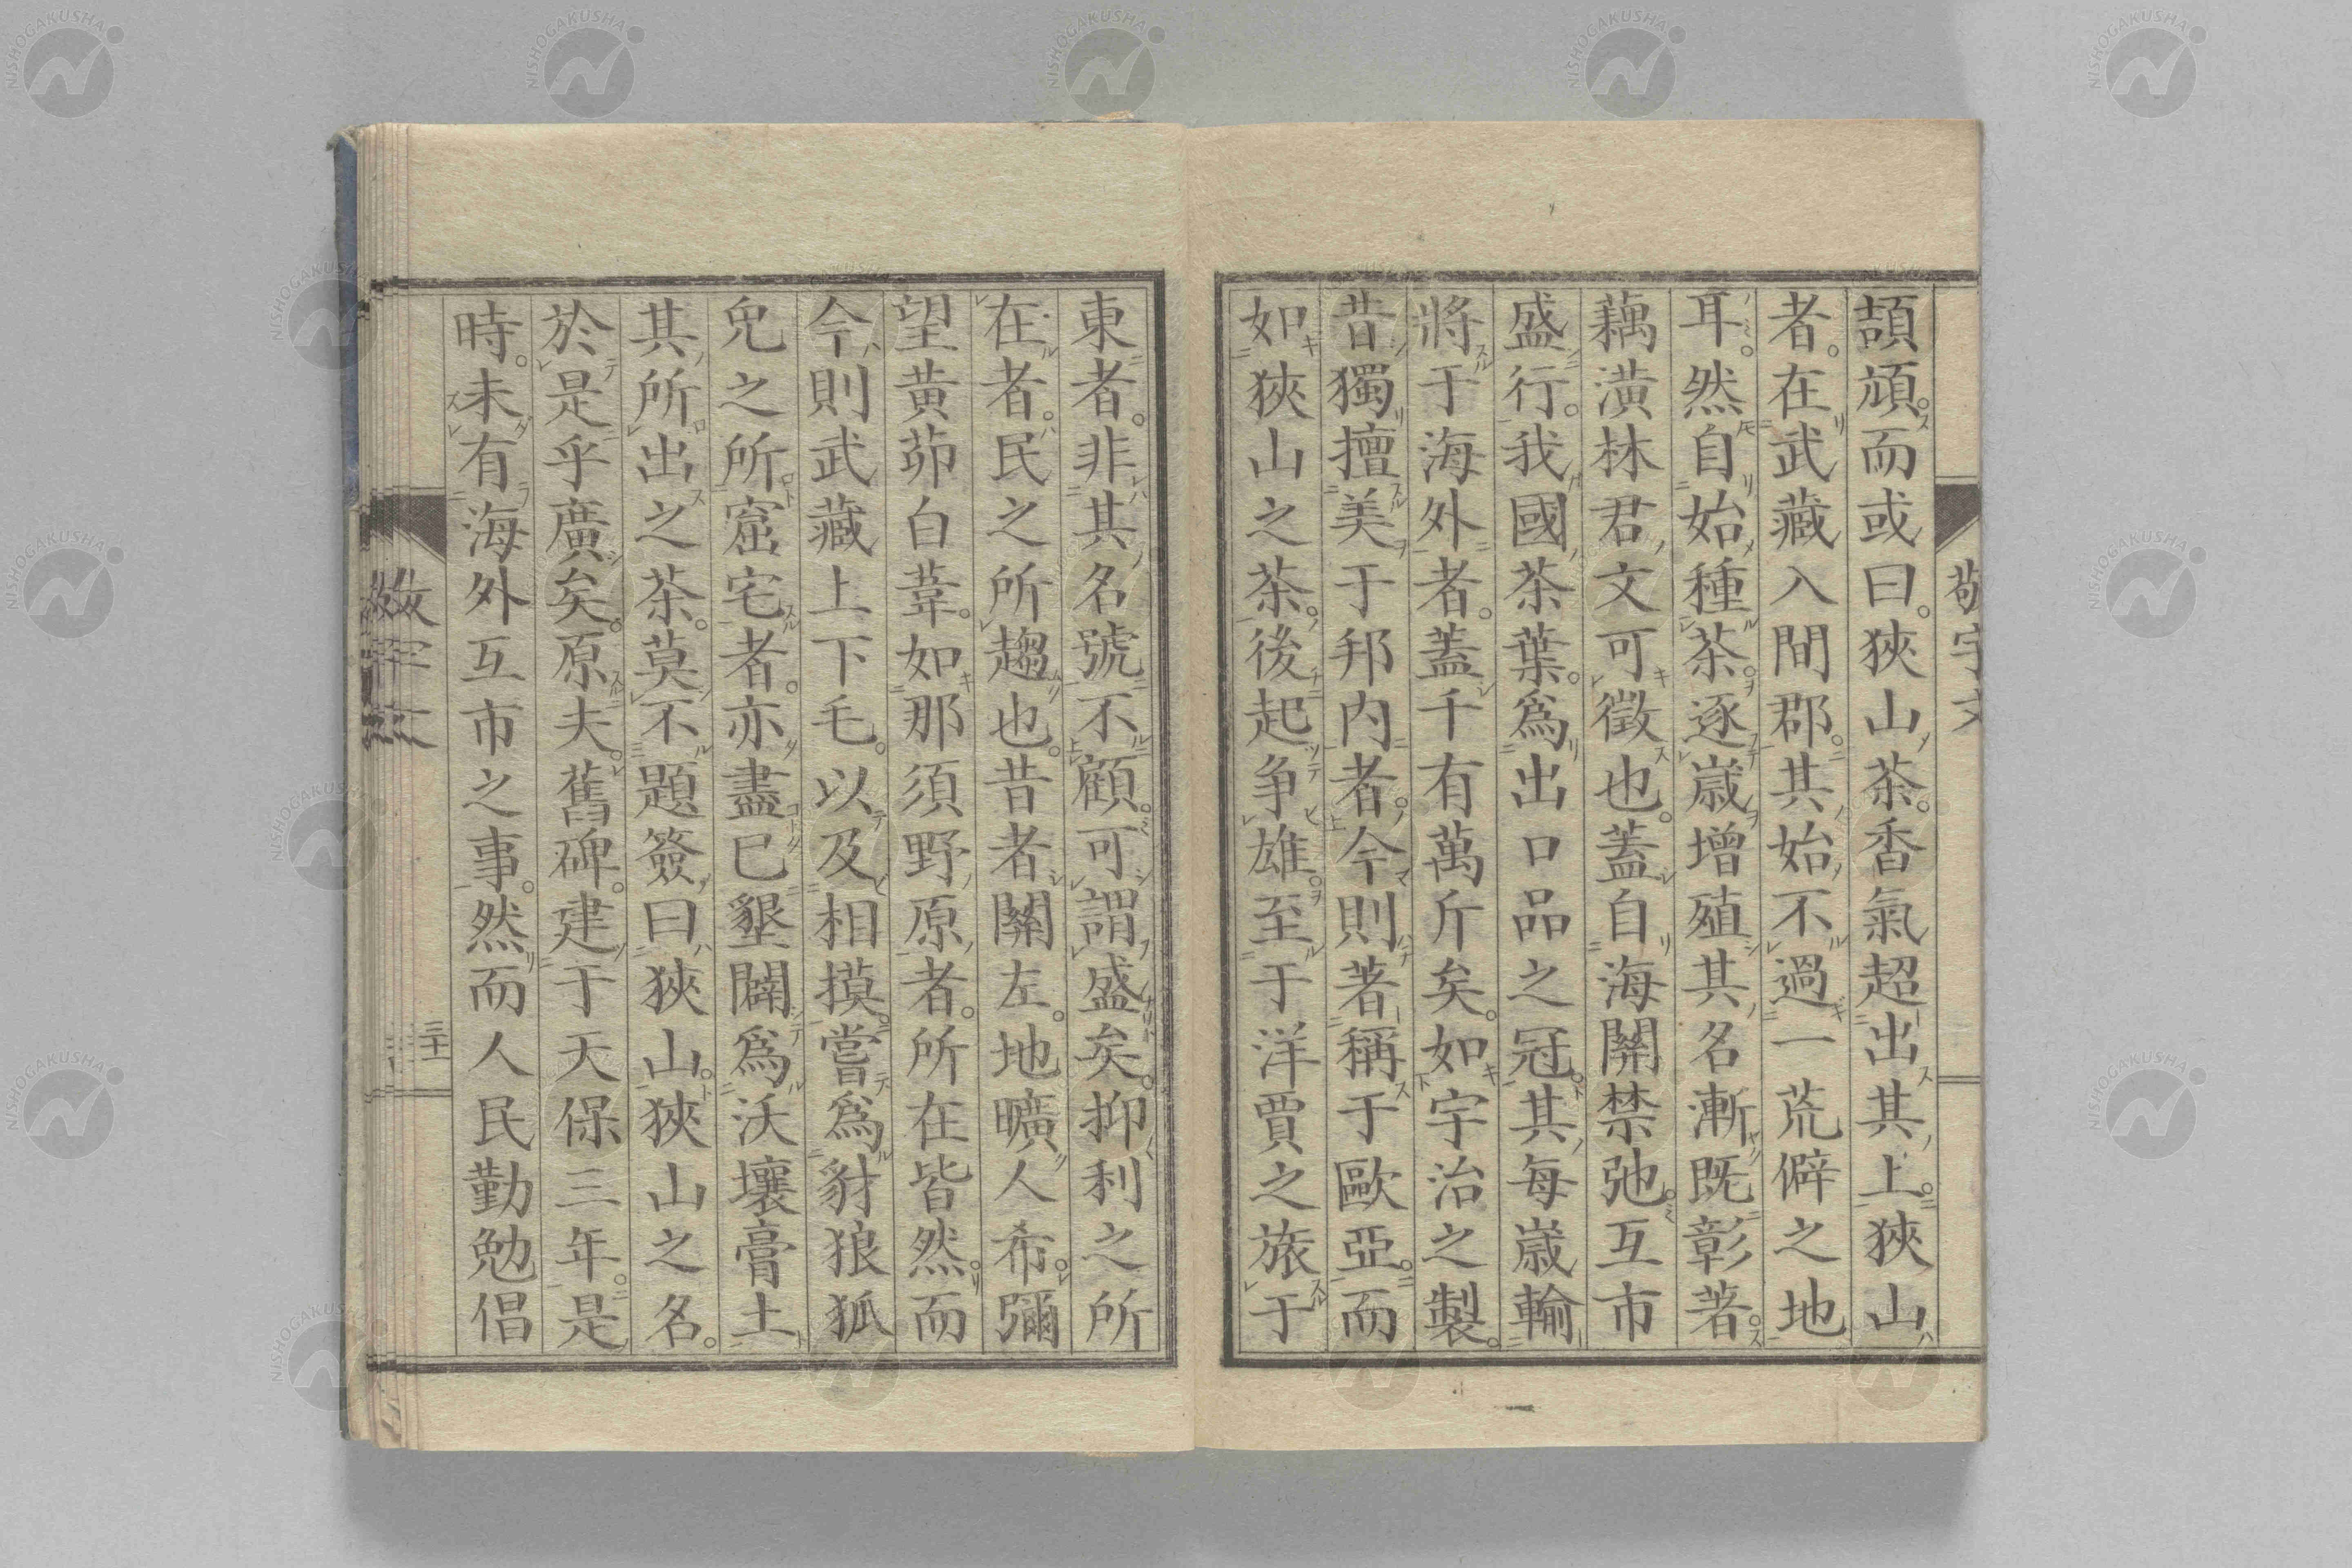 頡頏。而或曰。狹山茶。香氣超出其上。狹山
者。在武藏入間郡。其始不過一荒僻之地
耳。然自始種茶。逐歳增殖其名漸既彰著。
藕潢林君文可徵也。蓋自海關禁弛。互市
盛行。我國茶葉。爲出口品之冠。其每歳輸
將于海外者。蓋千有萬斤矣。如宇治之製。
昔獨擅美于邦内者。今則著稱于歐亞。而
如狹山之茶。後起争雄。至于洋賈之旅于
東者。非其名號不顧。可謂盛矣。抑利之所
在者。民之所趨也。昔者關左。地曠人希。彌
望黄茆白葦。如那須野原者。所在皆然。而
今則武藏上下毛。以及相摸。嘗爲豺狼狐
兔之所窟宅者。亦盡已墾闢爲沃壤膏土
其所出之茶。莫不題簽曰狹山。狹山之名。
於是乎廣矣。原夫。舊碑。建于天保三年。是
時。未有海外互市之事。然而人民勤勉倡
敬宇文
三十
NISHOGAKUSHA